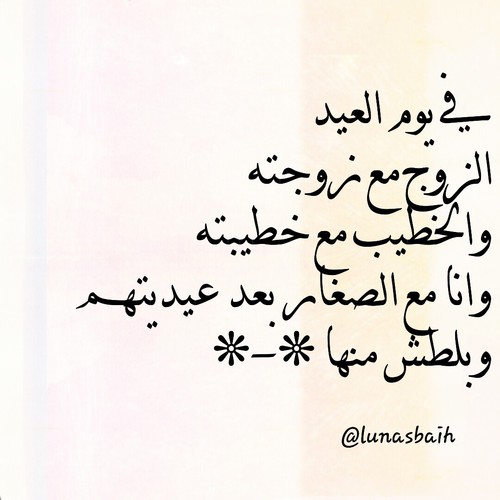 في يوم العيد
الزوج مع زوجته
والخطيب مع خطيبته
وانا مع الصغار بعد عيديتهم
وبلطش منها *_*
@lunasbaih